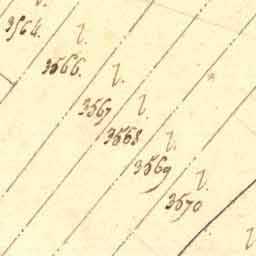 3564.
l.
3566.
l.
3567
l.
3568
l.
3569
l.
3570
l.